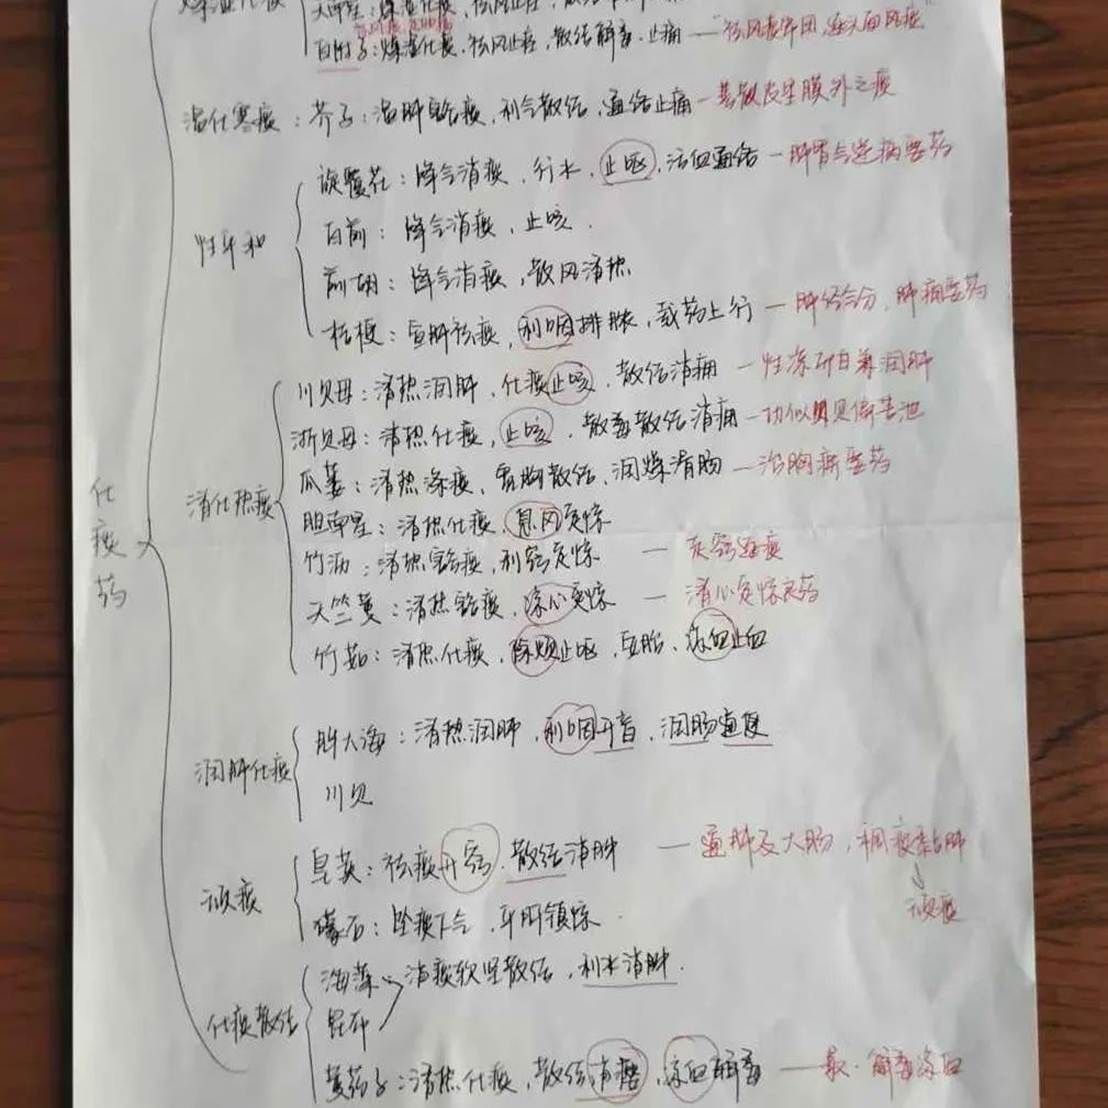 燥湿化痰
天南星：燥湿化痰，祛风止痉，散结
白附子：燥湿化痰，祛风止痉，散结解毒，止痛 — "祛风痰 逐头面风痰"
温化寒痰：芥子：温肺豁痰，利气散结，通络止痛 — 善散皮里膜外之痰
旋覆花：降气消痰，行水，止呕，活血通络 — 肺胃气逆病要药
性平和
白前：降气消痰，止咳．
前胡：降气消痰，散风清热
桔梗：宣肺祛痰，利咽排脓，载药上行 — 肺经气分，肺病要药
川贝母：清热润肺，化痰止咳，散结消痈 — 性凉 润肺
浙贝母：清热化痰，止咳，散毒散结消痈 — 功似川贝偏苦泄
瓜蒌：清热涤痰，宽胸散结，润燥滑肠 — 治胸痹要药
清化热痰
胆南星：清热化痰，息风定惊
竹沥：清热豁痰，利窍定惊 —
天竺黄：清热豁痰，凉心定惊 — 清心定惊良药
竹茹：清热化痰，除烦止呕，安胎，凉血止血
化痰药
胖大海：清热润肺，利咽开音，润肠通便
润肺化痰
川贝
皂荚：祛痰开窍，散结消肿 — 通肺及大肠，稠痰黏肺
↓
顽痰
顽痰
礞石：坠痰下气，平肝镇惊．
海藻 消痰软坚散结，利水消肿．
化痰散结
昆布
黄药子：清热化痰，散结消瘿，凉血解毒 — 解毒凉血